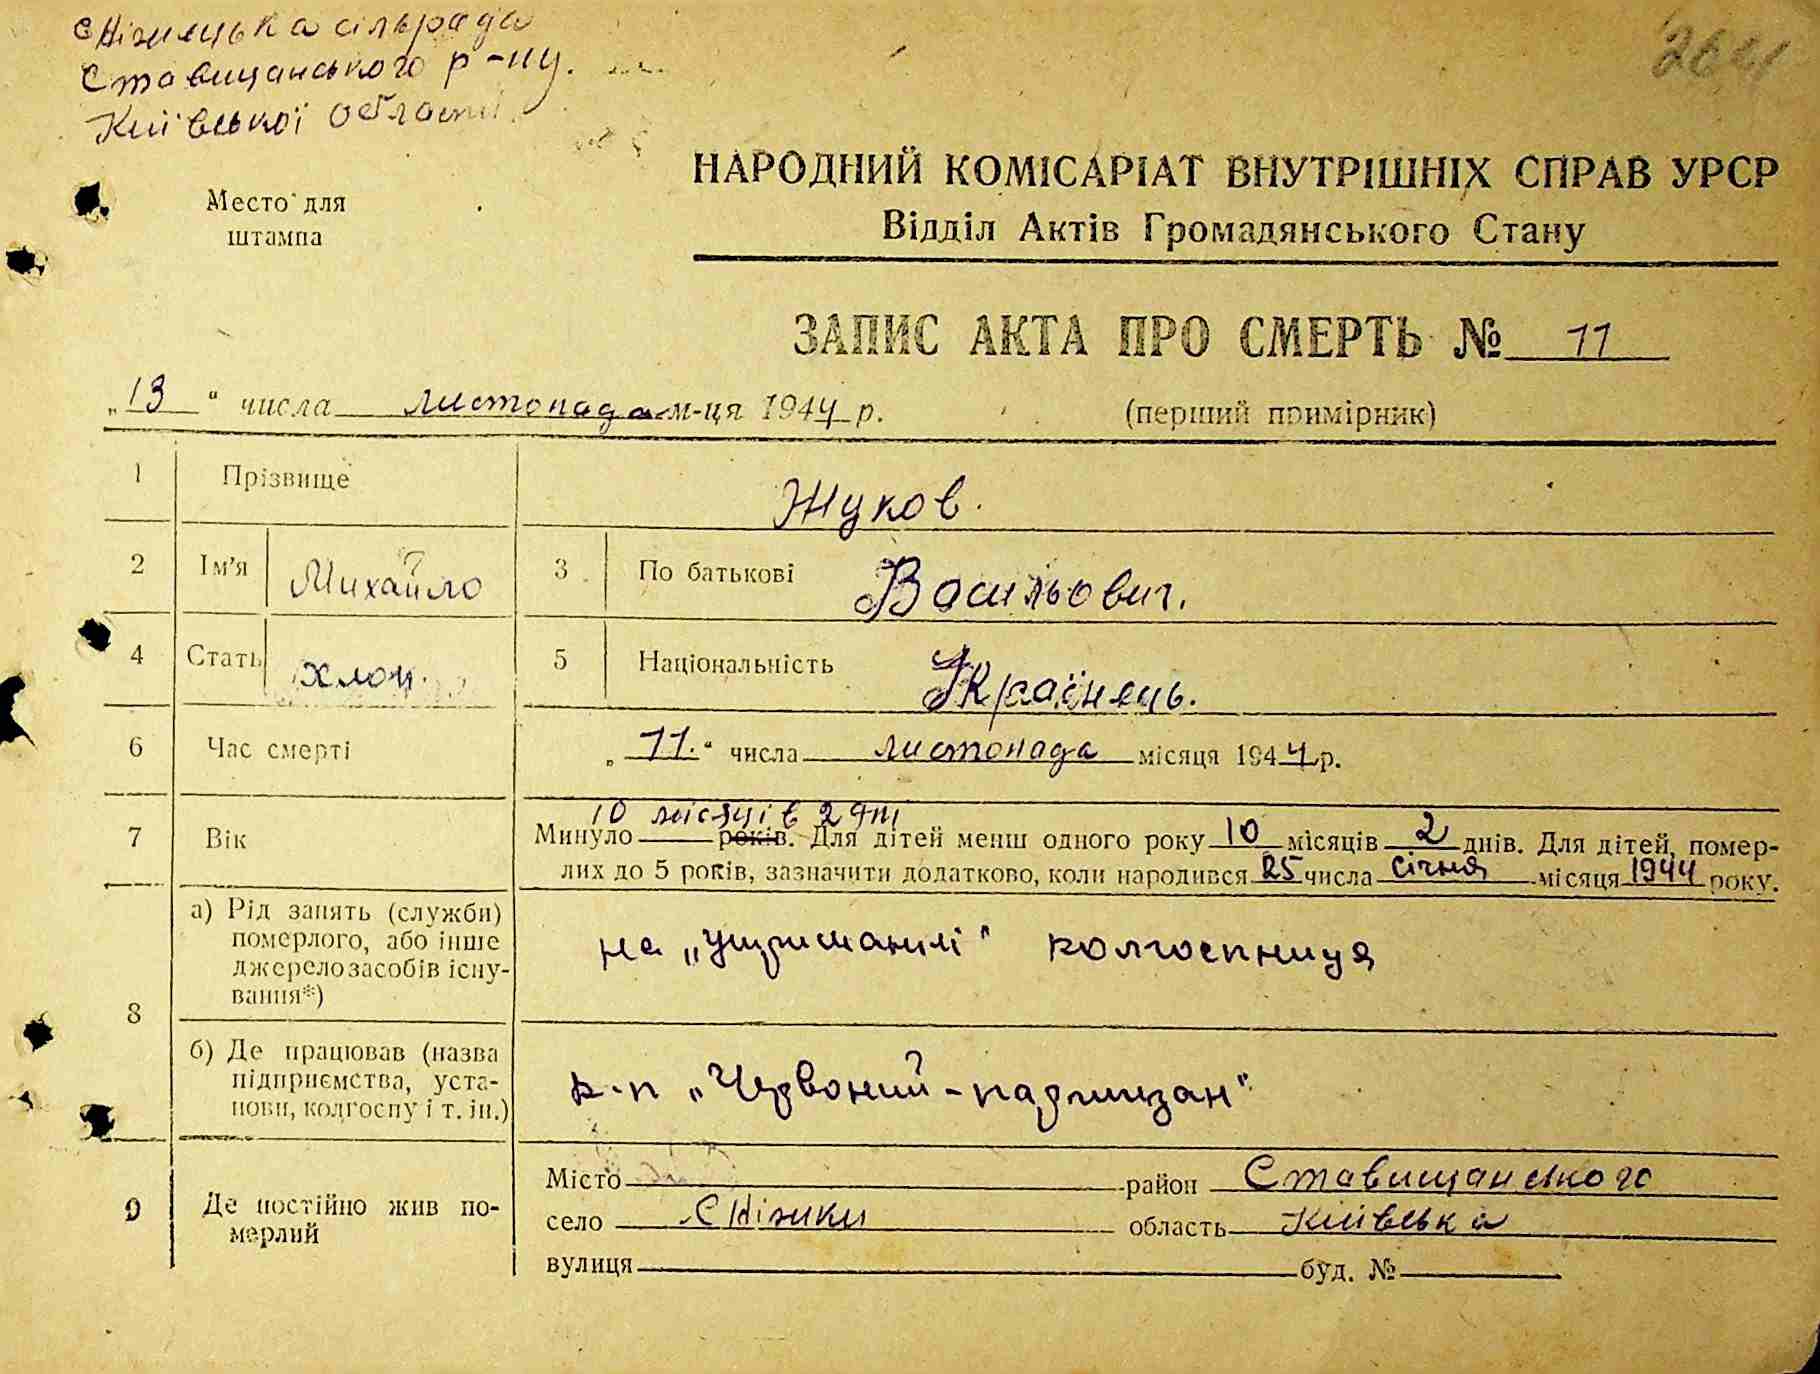 Сніжецька сільрада
Ставищанського р-ну.
Київської області.
264
Место для
штампа
НАРОДНИЙ КОМІСАРІАТ ВНУТРІШНІХ СПРАВ УРСР
Відділ Актів Громадянського Стану
ЗАПИС АКТА ПРО СМЕРТЬ № 11
„13“ числа листопада м-ця 1944 р. (перший примірник)
1 Прізвище Жуков.
2 Ім'я Михайло 3 По батькові Васильович.
4 Стать хлоп. 5 Національність Українець.
6 Час смерті „11.“ числа листопада місяця 1944 р.
10 місяців 2 дні
7 Вік Минуло років. Для дітей менш одного року 10 місяців 2 днів. Для дітей, помер-
лих до 5 років, зазначити додатково, коли народився 25 числа січня місяця 1944 року.
8 а) Рід занять (служби)
померлого, або інше
джерело засобів існу-
вання*)
на „утриманні“ колгоспниця
б) Де працював (назва
підприємства, уста-
нови, колгоспу і т. ін.)
к-п „Червоний-партизан“
9 Де постійно жив по-
мерлий
Місто район Ставищанського
село Сніжки область Київська
вулиця буд. №